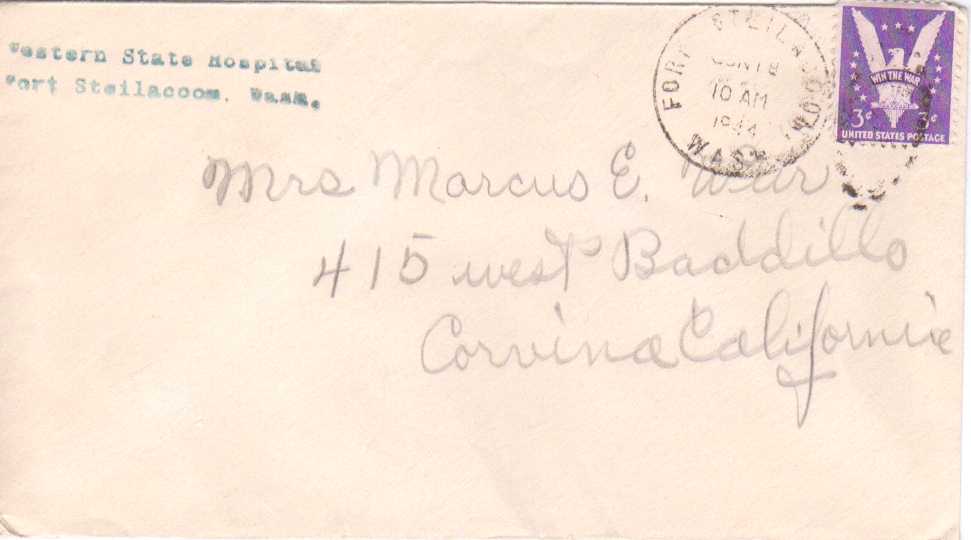 Western State Hospital
Fort Steilacoom, Wash.
FORT STEILACOOM
10 AM
1944
WASH.
WIN THE WAR
3¢ 3¢
UNITED STATES POSTAGE
Mrs Marcus E. Weir
415 west Baddillo
Corvina California